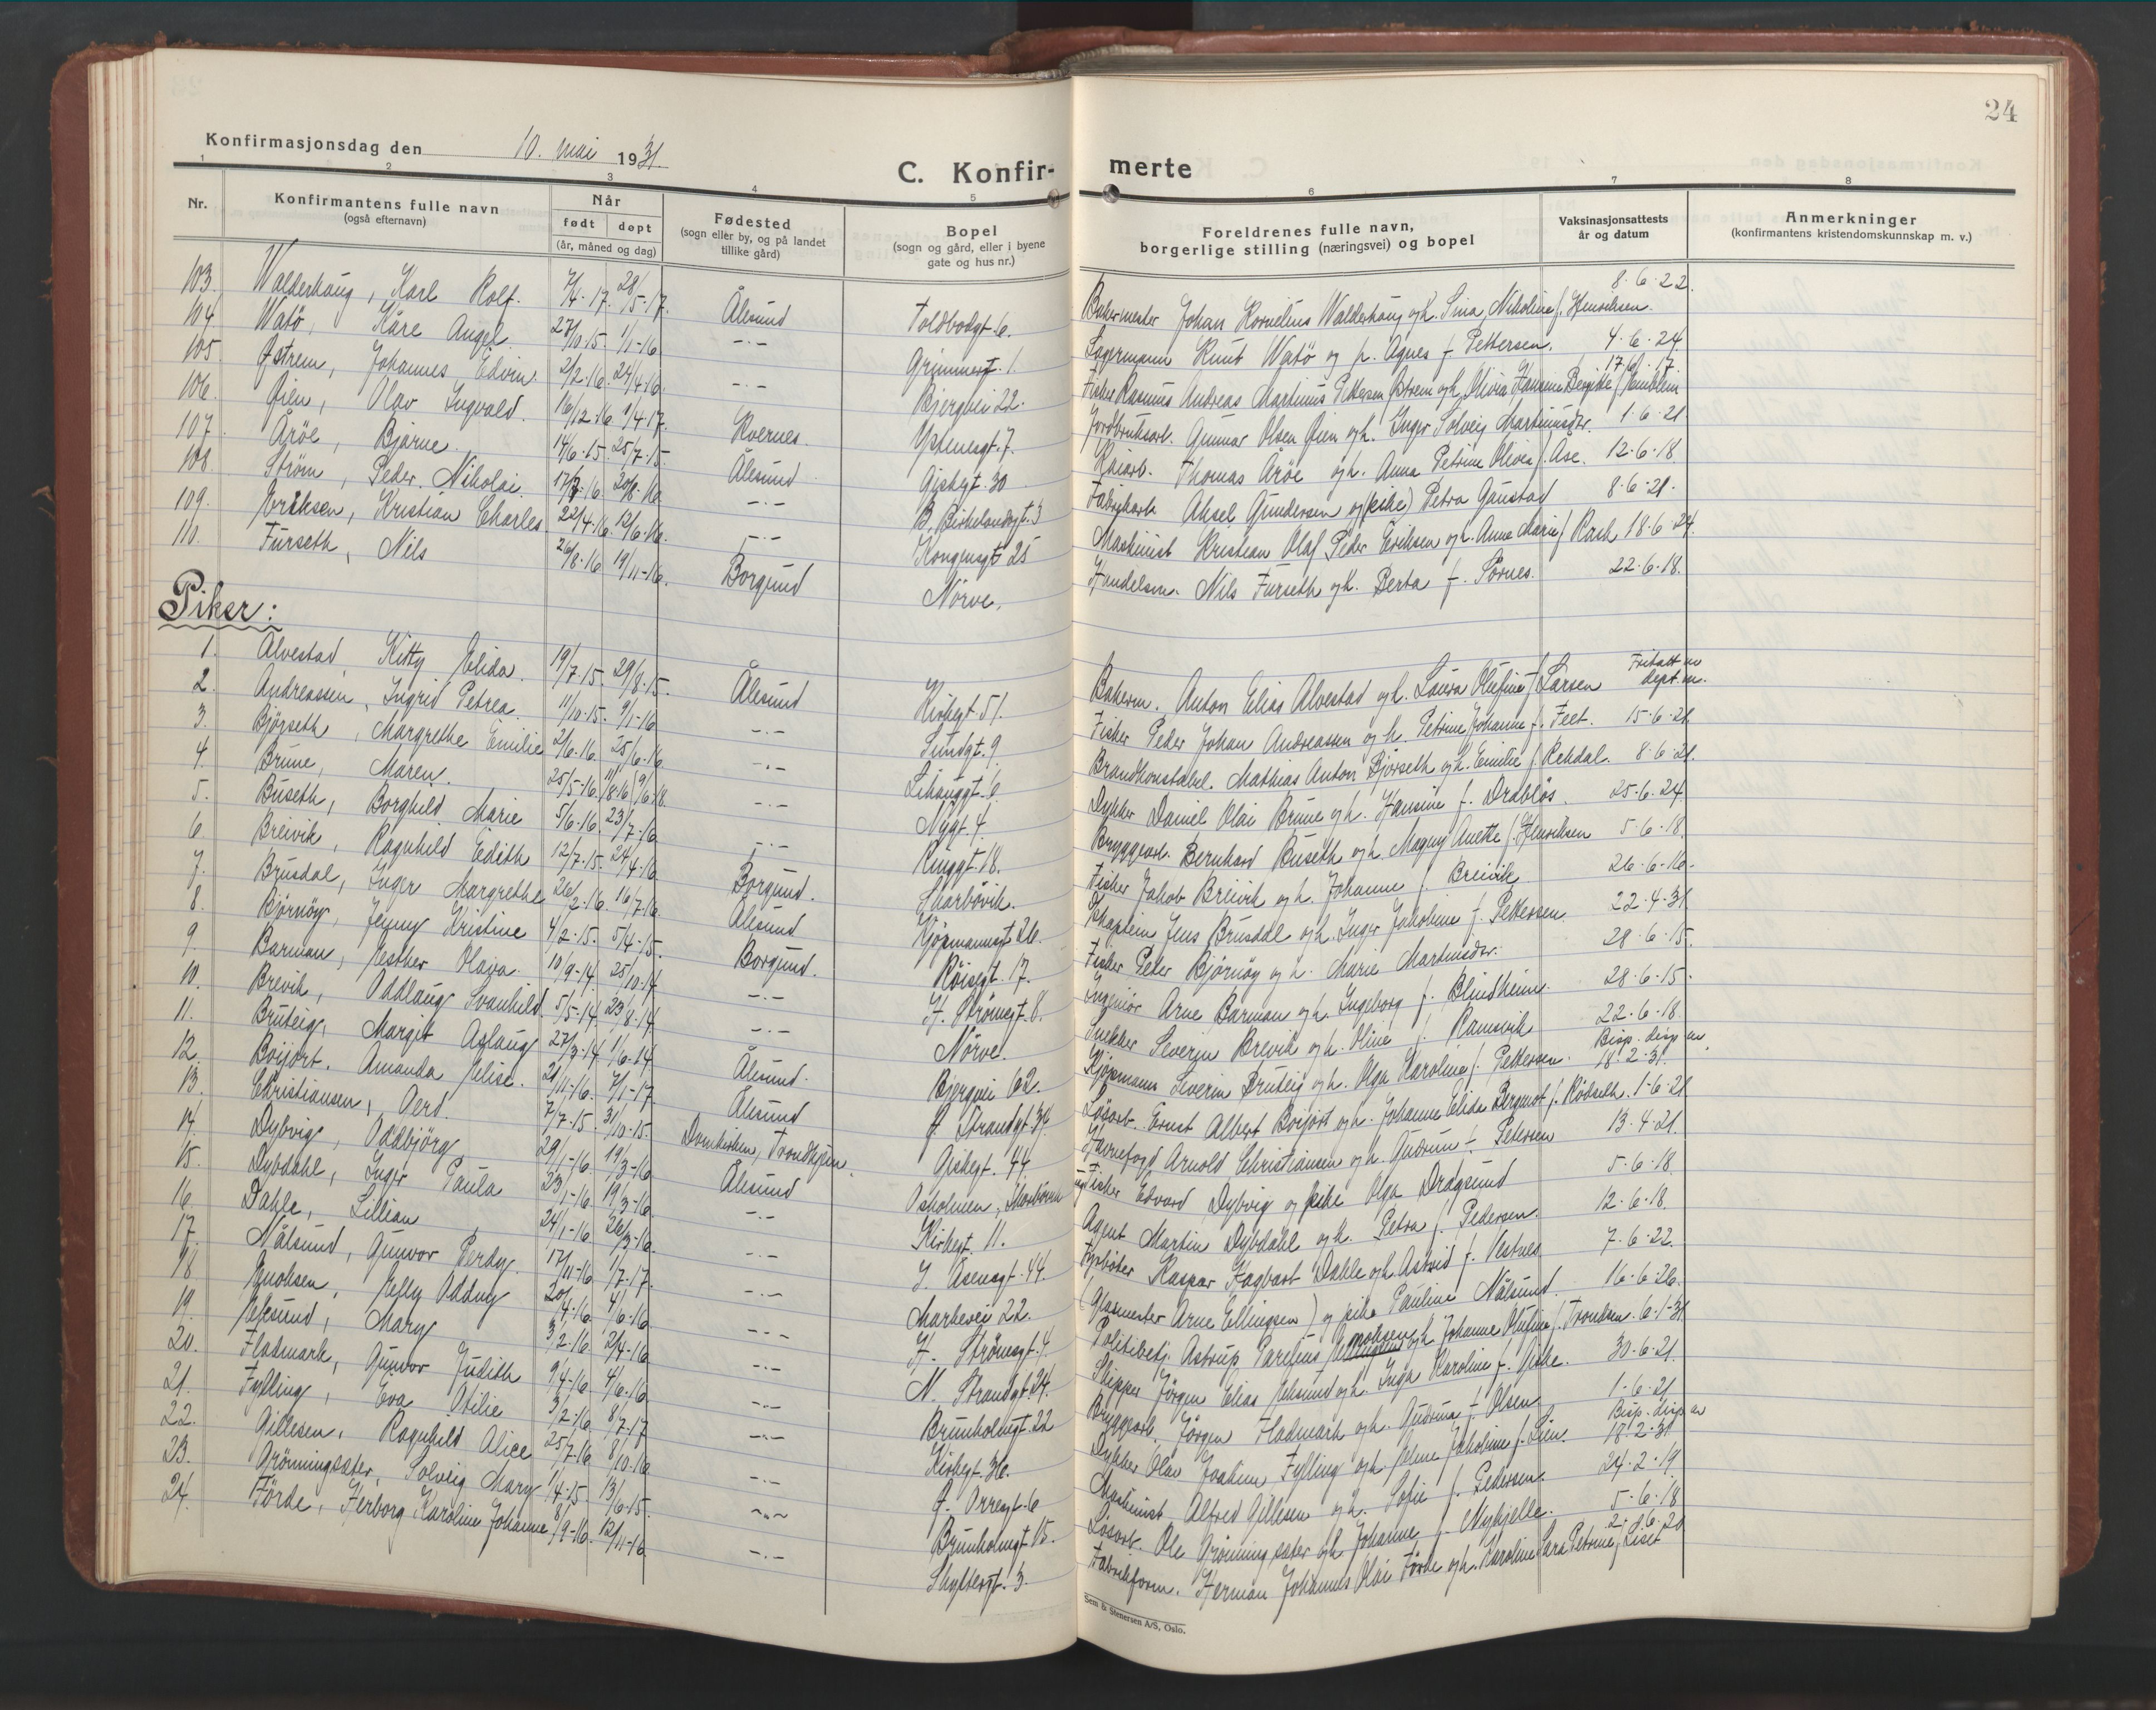 24
Konfirmasjonsdag den 10. mai 1931.
C. Konfir- merte
1 2 3 4 5 6 7 8
Nr.
Konfirmantens fulle navn
(også efternavn)
Når
født døpt
(år, måned og dag)
Fødested
(sogn eller by, og på landet
tillike gård)
Bopel
(sogn og gård, eller i byene
gate og hus nr.)
Foreldrenes fulle navn,
borgerlige stilling (næringsvei) og bopel
Vaksinasjonsattests
år og datum
Anmerkninger
(konfirmantens kristendomskunnskap m. v.)
103. Walderhaug, Karl Rolf. 7/4-17. 28/5-17. Ålesund Toldbodgt. 6. Bakermester Johan Kornelius Walderhaug og h. Sina Nikoline f. Henriksen. 8-6-22.
104. Watö, Kåre Angel. 27/10-15. 1/1-16 -"- Grimmergt. 1. Lagermann Knut Watö og h. Agnes f. Pettersen. 4-6-24.
105. Østrem, Johannes Edvin. 2/2-16. 24/4-16. -"- Bjergvei 22. Fisker Rasmus Andreas Martinus Pettersen Østrem og h. Olivia Hansine Bergitte f. Emblem 17-17.
106. Øien, Olav Ingvald. 16/12-16 9/4-17. Kvernes. Ystenesgt. 7. Jordbruksarb. Gunnar Olsen Øien og h. Inger Solveig Martinusdtr. 1-6-21
107. Åröe, Bjarne. 14/6-15. 25/7-15. Ålesund Giskegt. 30 Kaiarb. Thomas Åröe og h. Anna Petrine Olivia f. Åse. 12-6-18.
108. Ström, Peder Nikolai. 17/7-16. 20/8-16. -"- B. Birkelandsgt. 3 Fabrikarb. Aksel Gundersen og (pike) Petra Gaustad 8-6-21.
109. Eriksen, Kristian Charles 22/4-16. 12/6-16. -"- Kongensgt 25 Maskinist Kristian Olaf Peder Eriksen og h. Anna Marie f. Rask 18-6-24.
110. Furseth, Nils 26/8-16 19/11-16. Borgund Nörve. Handelsm. Nils Furseth og h. Berta f. Sornes. 22-6-18.
Piker:
1. Alvestad, Kitty Elida. 19/7-15. 29/8-15. Ålesund Kirkegt. 51. Bakerm. Anton Elias Alvestad og h. Laura Olufine f. Larsen Fritatt av dept. m.
2. Andreassen, Ingrid Petrea. 11/10-15. 9/1-16 -"- Sundgt. 9. Fisker Peder Johan Andreassen og h. Petrine Johanne f. Feet. 15-6-21.
3. Bjørseth, Margrethe Emilie 2/6-16. 25/6-16. -"- Lihauggt. 6. Brandkonstabel. Mathias Anton Bjørseth og h. Emilie f. Rekdal. 8-6-21.
4. Brune, Maren. 25/5-16. -"- Nygt. 4. Dykker Daniel Olai Brune og h. Hansine f. Drabløs. 25-6-24.
5. Buseth, Borghild Marie 5/6-16. 23/7-16 -"- Ruggt. 18. Bryggearb. Bernhard Buseth og h. Magny Anette f. Henriksen 5-6-18.
6. Breivik, Ragnhild Edith 12/7-15. 24/4-16 Borgund. Skarbövik. Fisker Jakob Breivik og h. Johanne f. Breivik 26-6-16.
7. Brusdal, Inger Margrethe 26/2-16. 16/7-16. Ålesund Kjöpmannsgt 26. Kaptein Jens Brusdal og h. Inger Jakobine f. Pettersen. 22-4-31
8. Bjørnöy, Jenny Kristine 4/2-15. 5/4-15. Borgund. Röisegt. 17. Fisker Peter Bjørnöy og h. Marie Martinsdtr. 28-6-15.
9. Barman, Esther Olava. 10/9-14. 25/10-14 -"- H. Strömsgt. 8. Ingeniör Arne Barman og h. Ingeborg f. Blindheim. 28-6-15.
10. Brevik, Oddlaug Svanhild 5/5-14. 23/8-14 -"- Nörve. Snekker Severin Brevik og h. Oline f. Ramsvik 22-6-18.
11. Bruteig, Margit Aslaug 27/3-14. 1/6-14 Ålesund. Bjergvei 62. Kjöpmann Severin Bruteig og h. Olga Karoline f. Pettersen. Bisp. disp. av 18-2-31.
12. Boijort. Amanda Elise. 21/11-16. 7/1-17 Ålesund Ø. Strandgt. 34 Lösarb. Ernst Albert Boijort og h. Johanne Elida Bergmot f. Rödseth. 1-6-21
13. Christiansen, Gerd. 7/7-15. 31/10-15. Domkirken, Trondhjem. Giskegt. 44 Havnefogd Arnold Christiansen og h. Gudrun f. Petersen 13-4-21.
14. Dybvig, Oddbjörg 29/1-16 19/3-16 Ålesund Osholmen, Skarbövik Fisker Edvard Dybvig og pike Olga Dragsund 5-6-18.
15. Dybdahl, Inger Paula 23/1-16. 19/3-16 -"- Kirkegt. 11. Agent Martin Dybdahl og h. Petra f. Pedersen. 12-6-18.
16. Dahle, Lillian 24/1-16 26/3-16. -"- J. Aasensgt. 44. Fyrböter Kaspar Hagbart Dahle og h. Astrid f. Vestnes 7-6-22.
17. Målsund, Gunvor Perdy. 17/11-16 1/7-17. -"- Markevei 22. (Glasmester Arne Ellingsen) og pike Pauline Målsund. 16-6-26.
18. Enoksen, Nelly Oddny 20/4-16. 4/6-16 -"- H. Strömsgt. 4. Politibetj. Astrup Parelius Enoksen og h. Johanne Olufine f. Trondsen. 6-1-31.
19. Eksund, Mary 3/2-16. 24/4-16 -"- N. Strandgt. 24. Skipper Jörgen Elias Eksund og h. Inga Karoline f. Giske. 30-6-21.
20. Fladmark, Gunvor Judith 9/4-16 4/6-16 -"- Brunholmgt. 22 Bryggearb. Jörgen Fladmark og h. Gudrun f. Olsen 1-6-21
21. Fylling, Eva Otilie 3/2-16. 8/7-17 -"- Kirkegt. 36. Dykker Olav Joakim Fylling og h. Jakobine f. Lien. Bisp. disp. av 18-2-31
22. Gillesen, Ragnhild Alice 25/7-16 8/10-16 -"- Ø. Orregt. 6 Maskinist Alfred Gillesen og h. Sofie f. Pedersen. 24-2-19
23. Grönningsæter, Solveig Mary 1/4-15 13/6-15. -"- Brunholmgt. 15. Lösarb. Ole Grönningsæter og h. Johanne f. Nykjelle. 5-6-18
24. Förde, Herborg Karoline Johanne 8/9-16. 12/11-16 -"- Skyttergt. 3. Fabrikform. Herman Johannes Olai Förde og h. Karoline Sara Petrine f. Liset 2-6-20
Sem & Stenersen A/S, Oslo.